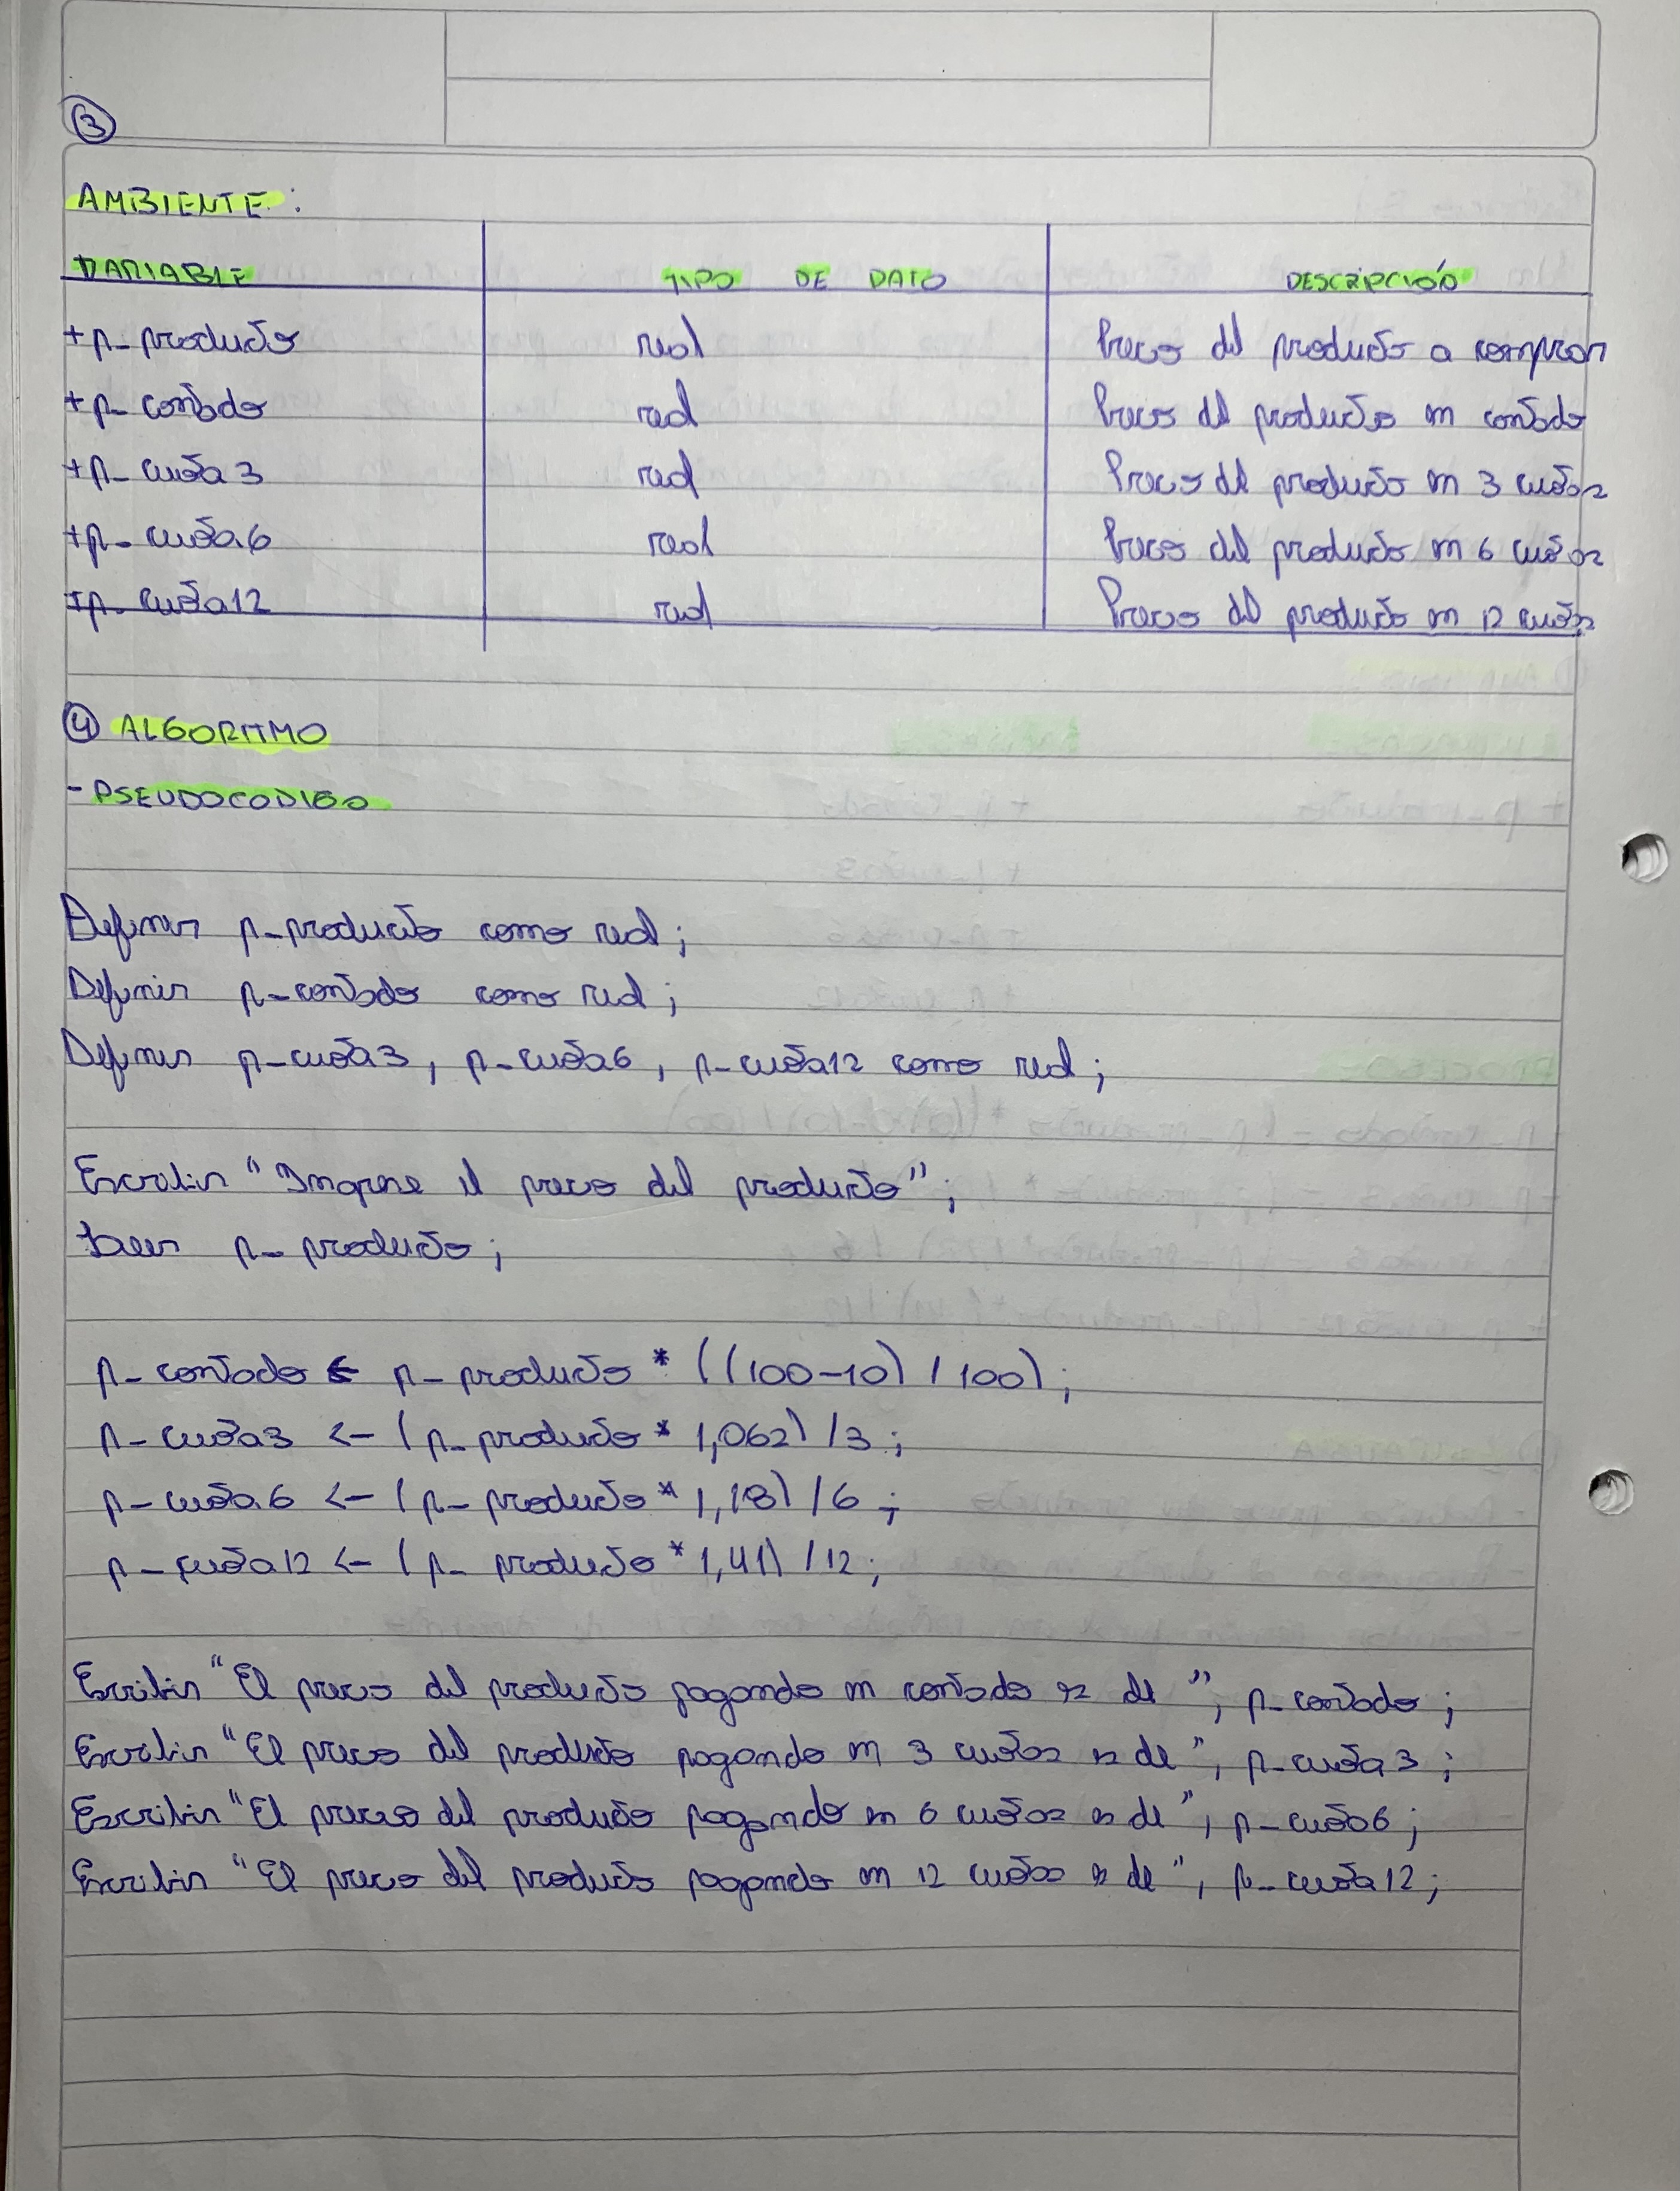 3
AMBIENTE:
VARIABLE TIPO DE DATO DESCRIPCIÓN
+p_producto real Precio del producto a comprar
+p_contado real Precio del producto en contado
+p_cuota3 real Precio del producto en 3 cuotas
+p_cuota6 real Precio del producto en 6 cuotas
+p_cuota12 real Precio del producto en 12 cuotas
4 ALGORITMO
- PSEUDOCODIGO
Definir p_producto como real;
Definir p_contado como real;
Definir p_cuota3, p_cuota6, p_cuota12 como real;
Escribir "Ingrese el precio del producto";
Leer p_producto;
p_contado ← p_producto * ((100-10) / 100);
p_cuota3 <- (p_producto * 1,062) /3;
p_cuota6 <- (p_producto * 1,18) /6;
p_cuota12 <- (p_producto * 1,41) /12;
Escribir "El precio del producto pagando en contado es de", p_contado;
Escribir "El precio del producto pagando en 3 cuotas es de", p_cuota3;
Escribir "El precio del producto pagando en 6 cuotas es de", p_cuota6;
Escribir "El precio del producto pagando en 12 cuotas es de", p_cuota12;